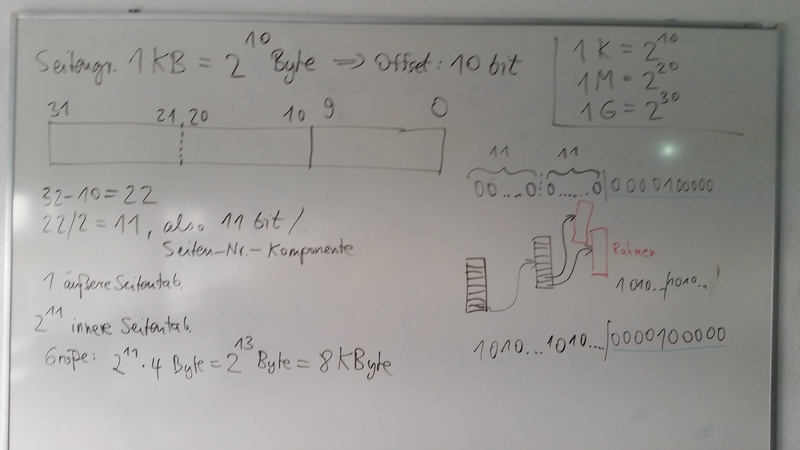 Seitengr. 1KB = 2^10 Byte => Offset: 10 bit
1K = 2^10
1M = 2^20
1G = 2^30
31 21,20 10 9 0
11 11
00....0 0......0|0000100000
32-10=22
22/2 = 11, also 11 bit/
Seiten-Nr.-Komponente
Rahmen
1 äußere Seitentab.
1010../1010../
2^11 innere Seitentab.
1010...1010...|0000100000
Größe: 2^11 · 4 Byte = 2^13 Byte = 8 KByte